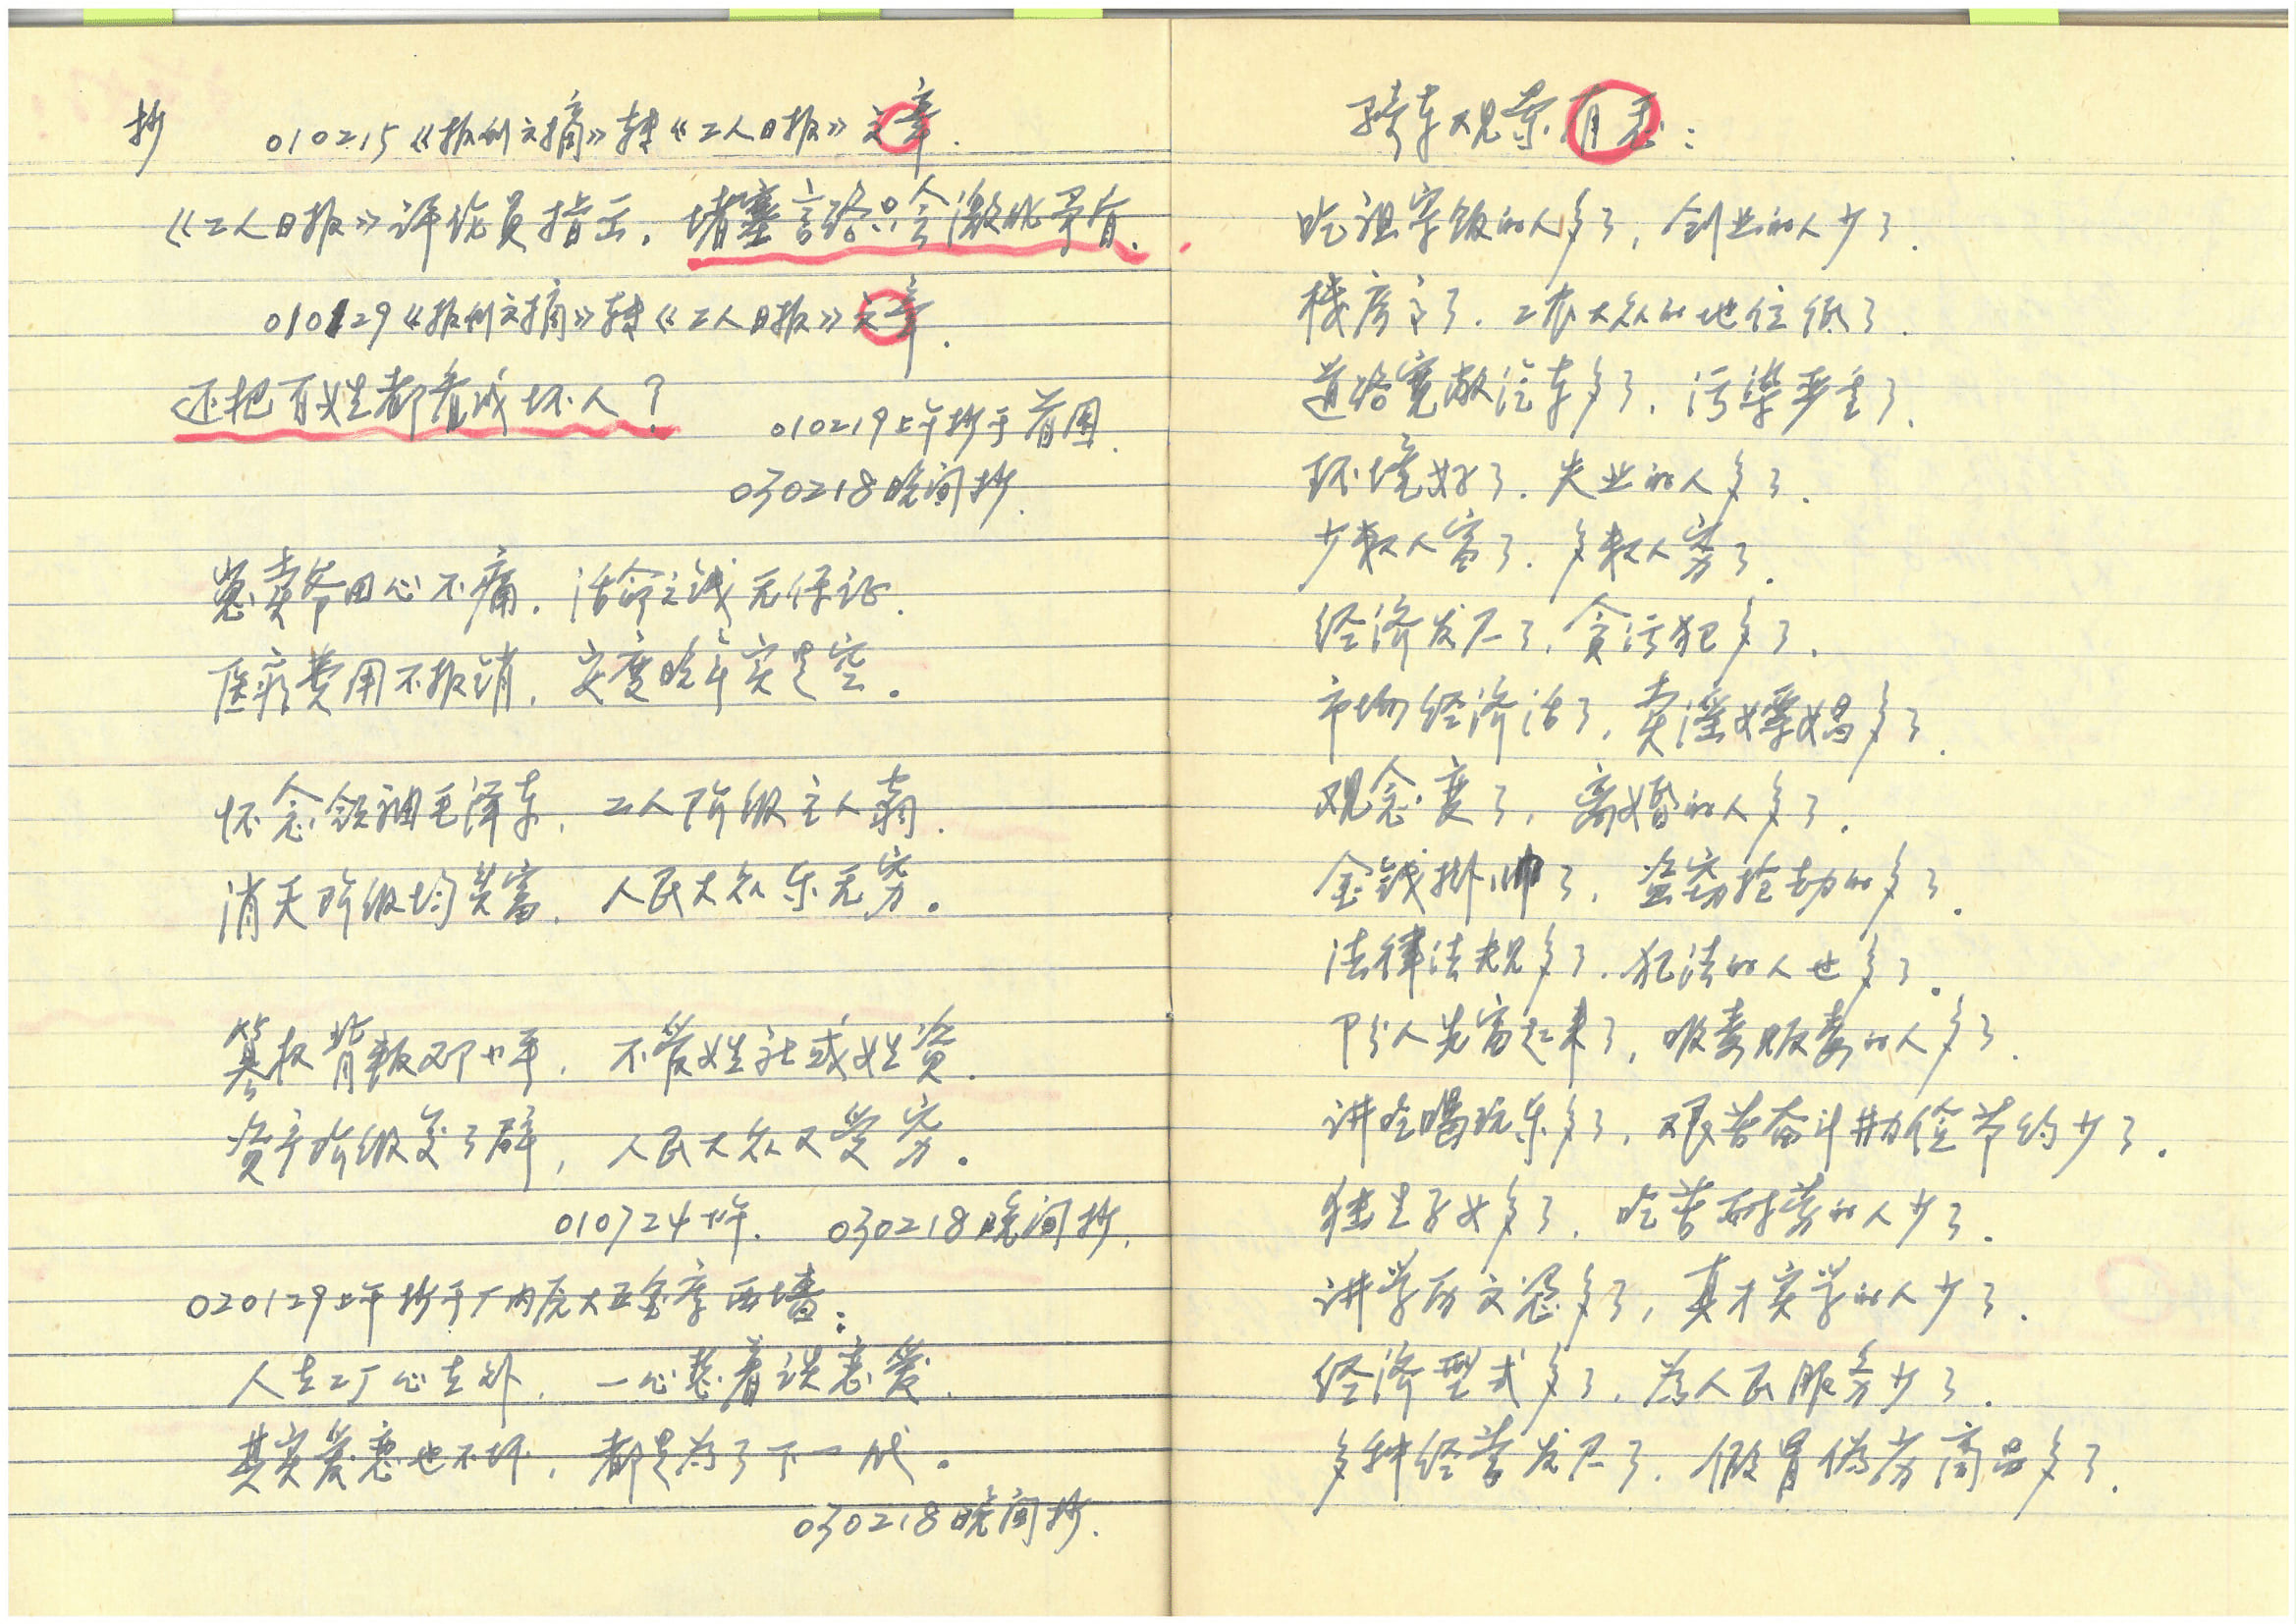 抄 010215《报刊文摘》转《工人日报》文章.
《工人日报》评论员指出，堵塞言路只会激化矛盾.
010129《报刊文摘》转《工人日报》文章.
还把百姓都看成坏人？
010219上午抄于首图.
030218晚间抄.
崽卖爷田心不痛，活命之钱无保证.
医疗费用不报销，安度晚年实是空。
怀念领袖毛泽东，工人阶级主人翁.
消灭阶级均共富，人民大众乐无穷。
篡权背叛邓小平，不管姓社或姓资.
资产阶级复了辟，人民大众又受穷。
010724下午. 030218晚间抄.
020129上午抄于厂内庞大五金库西墙：
人在工厂心在外，一心想着谈恋爱.
其实爱恋也不坏，都是为了下一代。
030218晚间抄.
骑车观景有感：
吃祖宗饭的人多了，创业的人少了.
楼房高了，工农大众的地位低了.
道路宽敞汽车多了，污染严重了.
环境好了，失业的人多了.
少数人富了，多数人穷了.
经济发展了，贪污犯多了.
市场经济活了，卖淫嫖娼多了.
观念变了，离婚的人多了.
金钱挂帅了，盗窃抢劫的多了.
法律法规多了，犯法的人也多了.
部分人先富起来了，吸毒贩毒的人多了.
讲吃喝玩乐多了，艰苦奋斗勤俭节约少了.
独生子女多了，吃苦耐劳的人少了.
讲学历文凭多了，真才实学的人少了.
经济型式多了，为人民服务少了.
多种经营发展了，假冒伪劣商品多了.